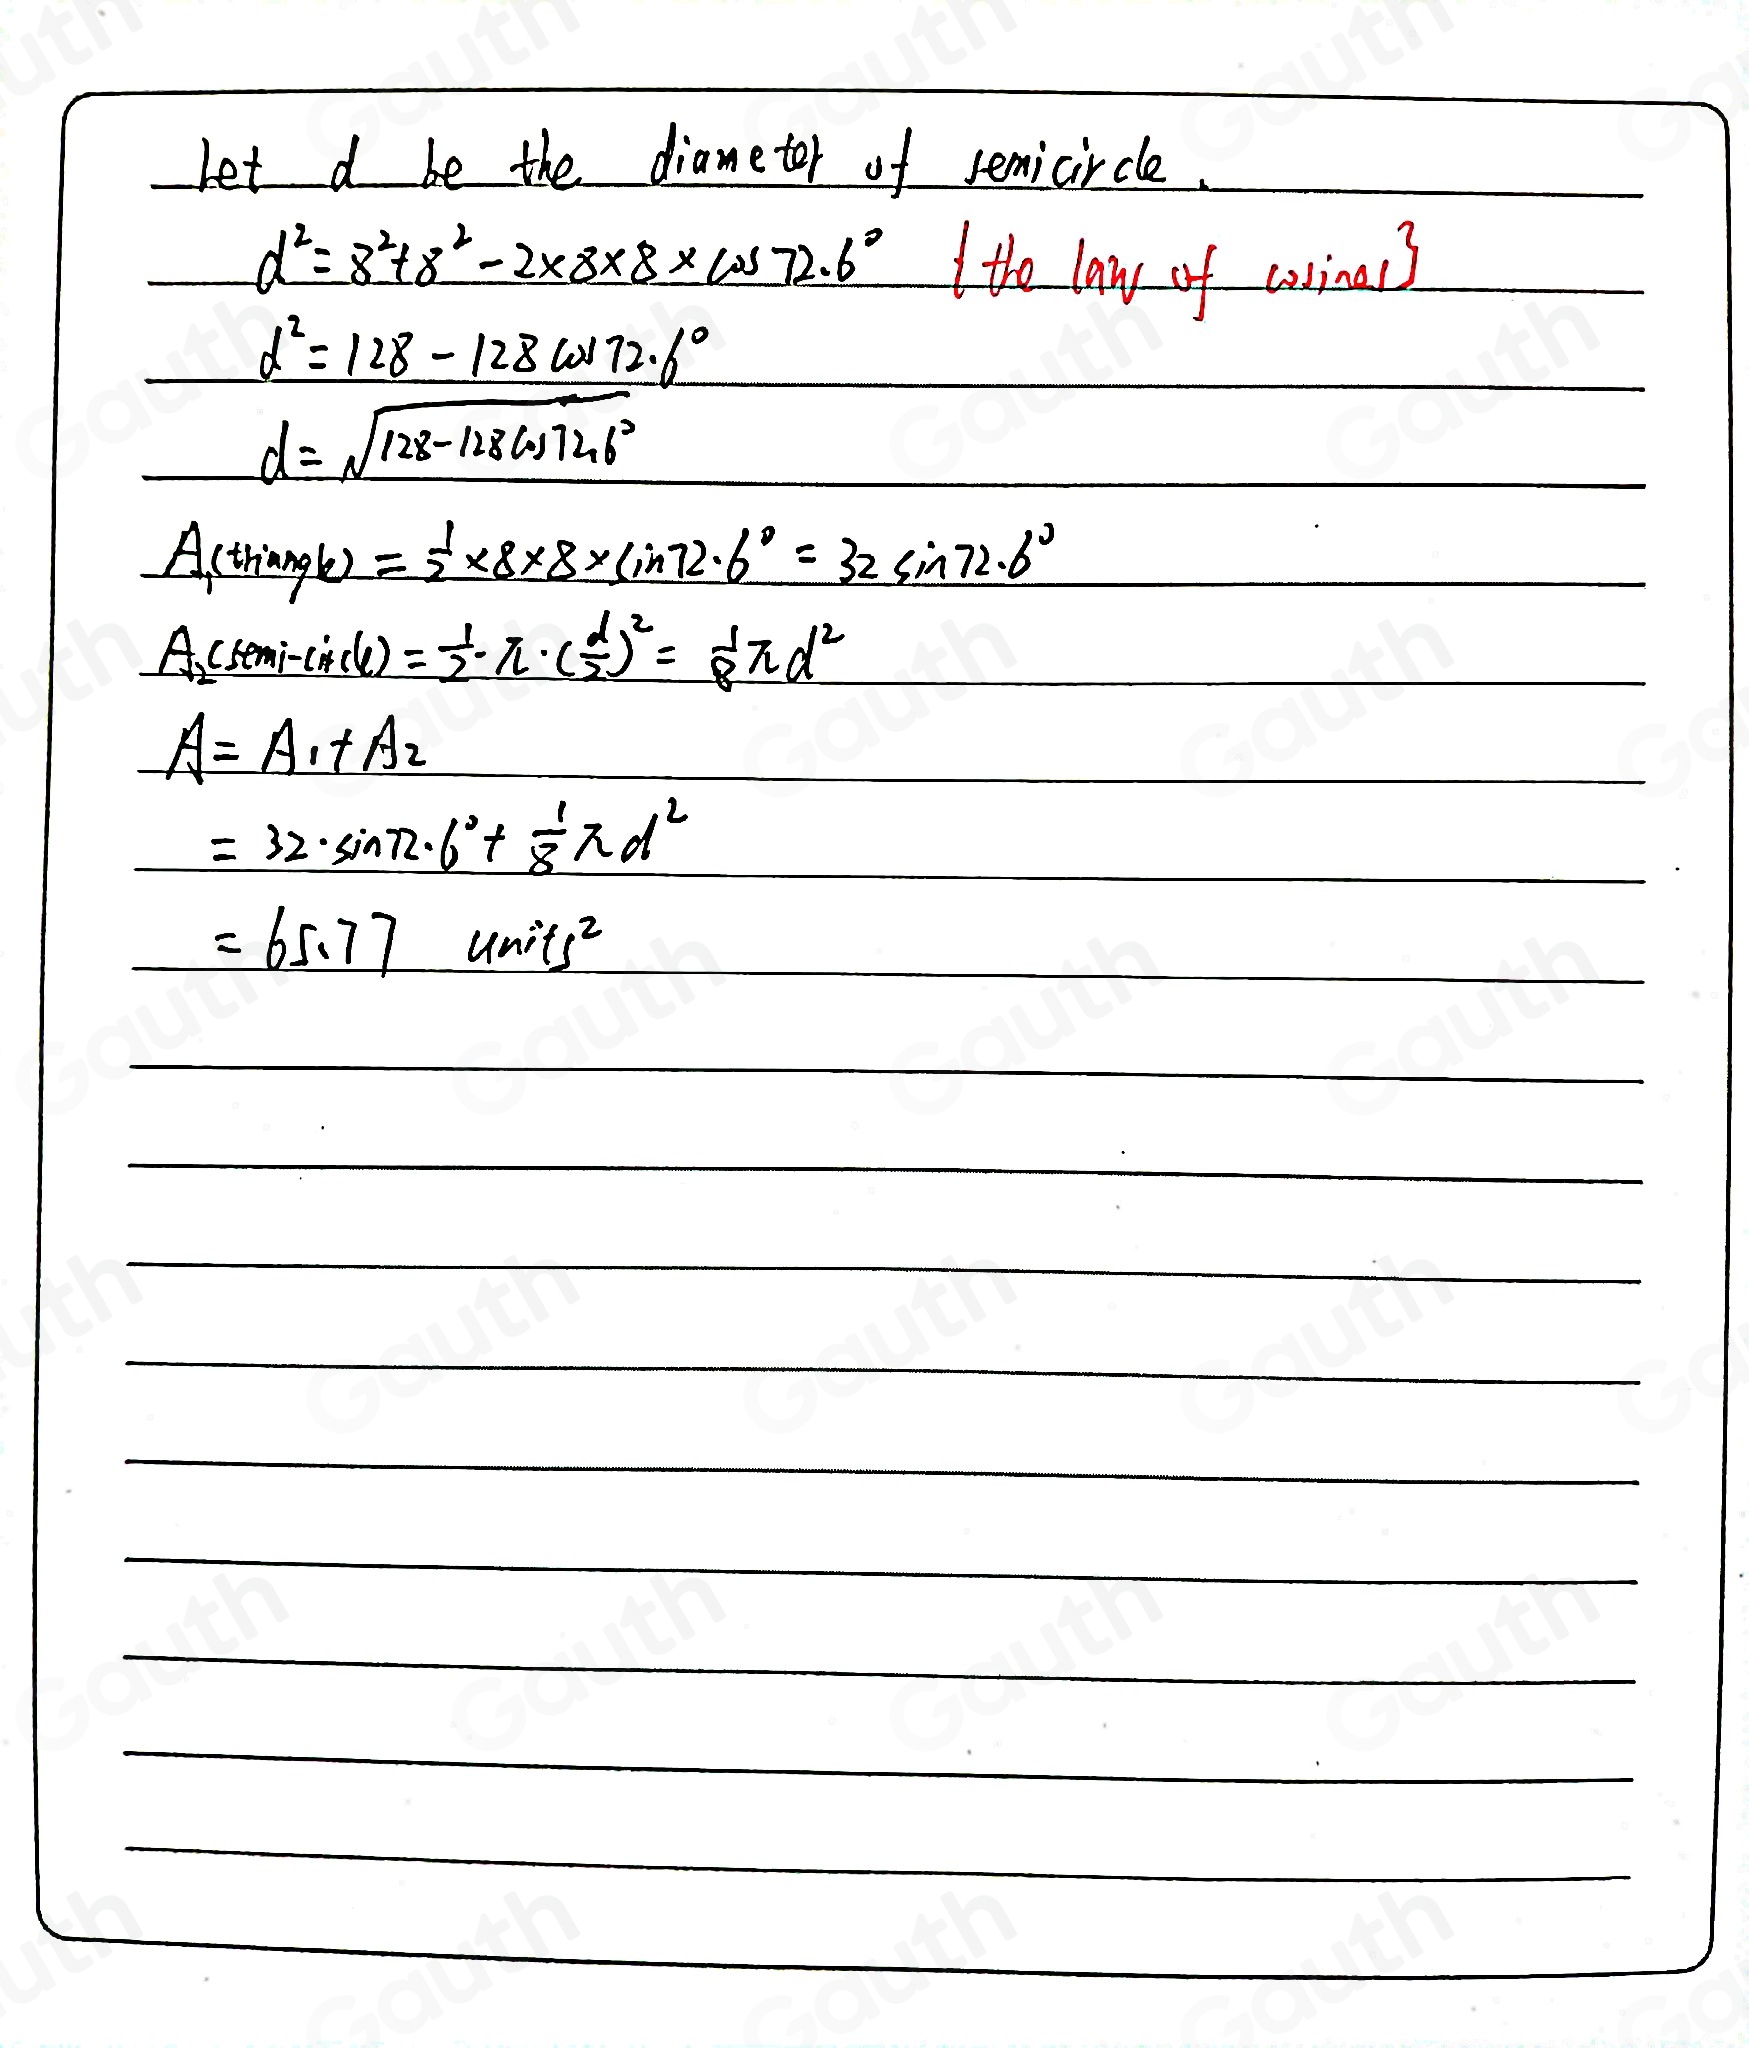 Let d be the diameter of semicircle.
d²=8²+8²-2×8×8×cos72.6° {the law of cosines}
d²=128-128cos72.6°
d=√128-128cos72.6°
A₁(triangle)=1/2×8×8×sin72.6°=32sin72.6°
A₂(semi-circle)=1/2·π·(d/2)²=1/8πd²
A=A₁+A₂
=32·sin72.6°+1/8πd²
=65.77 units²